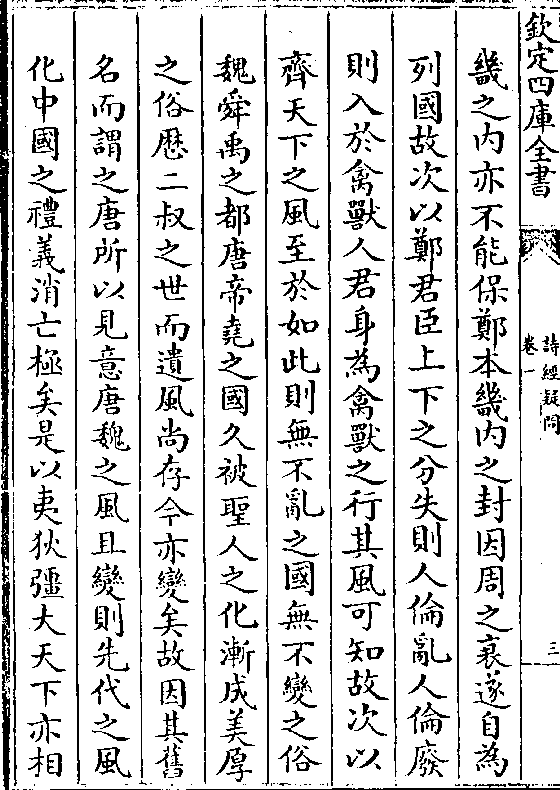 欽定四庫全書
詩經疑問
卷一
三
畿之内亦不能保鄭本畿内之封因周之衰遂自為
列國故次以鄭君臣上下之分失則人倫亂人倫廢
則入於禽獸人君身為禽獸之行其風可知故次以
齊天下之風至於如此則無不亂之國無不變之俗
魏舜禹之都唐帝堯之國久被聖人之化漸成美厚
之俗歴二叔之世而遺風尚存今亦變矣故因其舊
名而謂之唐所以見意唐魏之風且變則先代之風
化中國之禮義消亡極矣是以夷狄彊大天下亦相